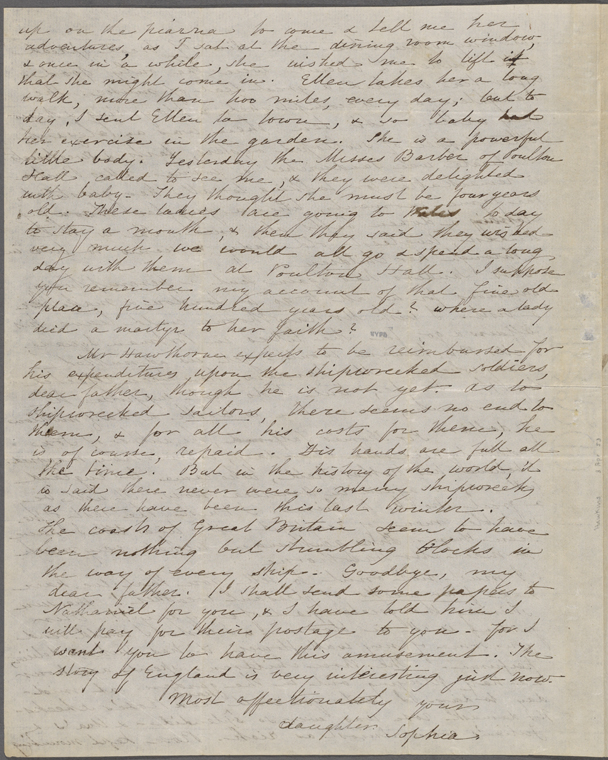 up on the piazza to come & tell me her
adventures, as I sat at the dining room window,
& once in a while, she wished me to lift it
that she might come in. Ellen takes her a long
walk, more than two miles, every day; but to
day, I sent Ellen to town, & so baby had
her exercise in the garden. She is a powerful
little body. Yesterday the Misses Barber of Poulton
Hall called to see me, & they were delighted
with baby. They thought she must be four years
old. These ladies are going to Wales to day
to stay a month, & then they said they wished
very much we would all go & spend a long
day with them at Poulton Hall. I suppose
you remember my account of that fine old
place, five hundred years old? where a lady
died a martyr to her faith?
Mr Hawthorne expects to be reimbursed for
his expenditures upon the shipwrecked soldiers,
dear father, though he is not yet. As to
shipwrecked sailors, there seems no end to
them, & for all his costs for them, he
is of course, repaid. His hands are full all
the time. But in the history of the world, it
is said there never were so many shipwrecks
as there have been this last winter.
The coasts of Great Britain seem to have
been nothing but stumbling blocks in
the way of every ship. Goodbye, my
dear father. I shall send some papers to
Nathaniel for you, & I have told him I
will pay for their postage to you - for I
want you to have this amusement. The
story of England is very interesting just now.
Most affectionately your
daughter Sophia.